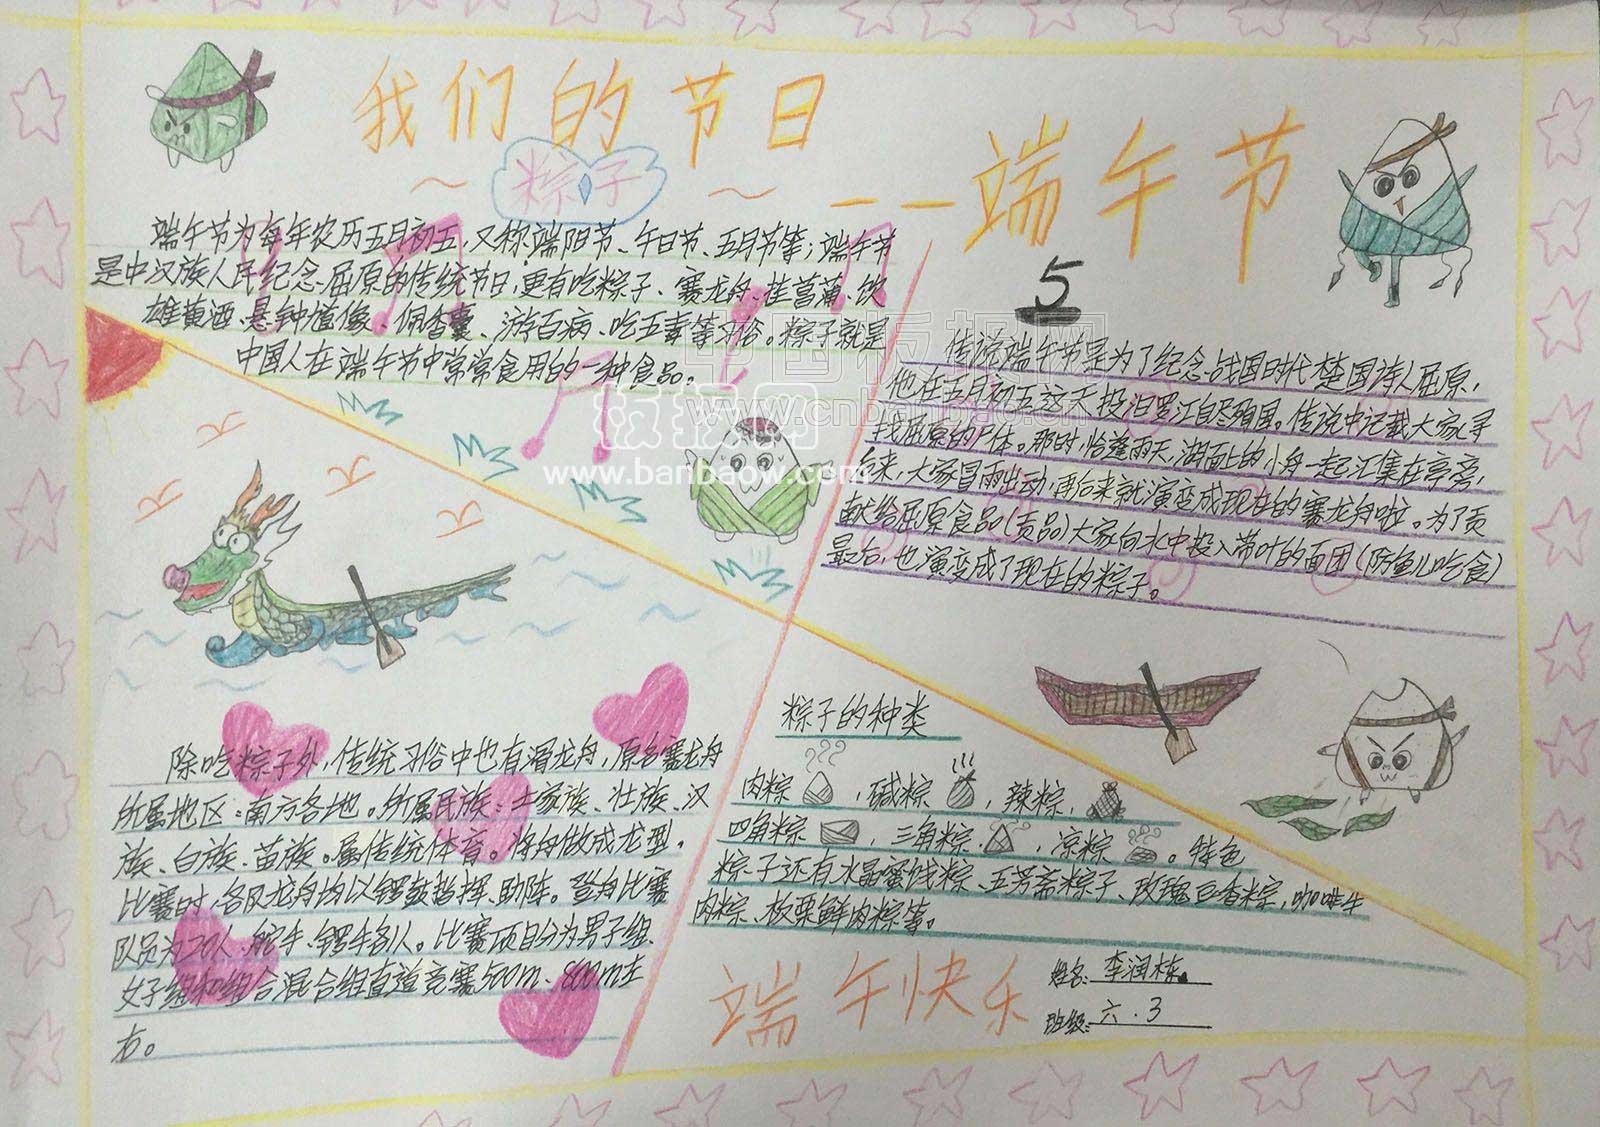 我们的节日
粽子
——端午节
5
端午节为每年农历五月初五，又称端阳节、午日节、五月节等；端午节
是中汉族人民纪念屈原的传统节日，更有吃粽子、赛龙舟、挂菖蒲、饮
雄黄酒、悬钟馗像、佩香囊、游百病、吃五毒等习俗。粽子就是
中国人在端午节中常常食用的一种食品。
中国板报网
www.cnbanbao.com
板报网
www.banbaow.com
传说端午节是为了纪念战国时代楚国诗人屈原，
他在五月初五这天投汨罗江自尽殉国。传说中记载大家寻
找屈原的尸体。那时，恰逢雨天，湖面上的小舟一起汇集在亭旁，
后来，大家冒雨出动，再后来就演变成现在的赛龙舟啦。为了贡
献给屈原食品（贡品）大家向水中投入带叶的面团（防鱼儿吃食）
最后，也演变成了现在的粽子。
除吃粽子外，传统习俗中也有滑龙舟，原名赛龙舟
所属地区：南方各地。所属民族：土家族、壮族、汉
族、白族、苗族。属传统体育。将舟做成龙型，
比赛时，各队龙舟均以锣鼓指挥、助阵。登舟比赛
队员为20人、舵手、锣手各1人。比赛项目分为男子组、
女子组和组合混合组直道竞赛500m、800m左
右。
粽子的种类
肉粽，碱粽，辣粽，
四角粽，三角粽，凉粽。特色
粽子还有水晶蜜饯粽、五芳斋粽子、玫瑰豆香粽，咖啡牛
肉粽、板栗鲜肉粽等。
端午快乐
姓名：李润栋
班级：六.3